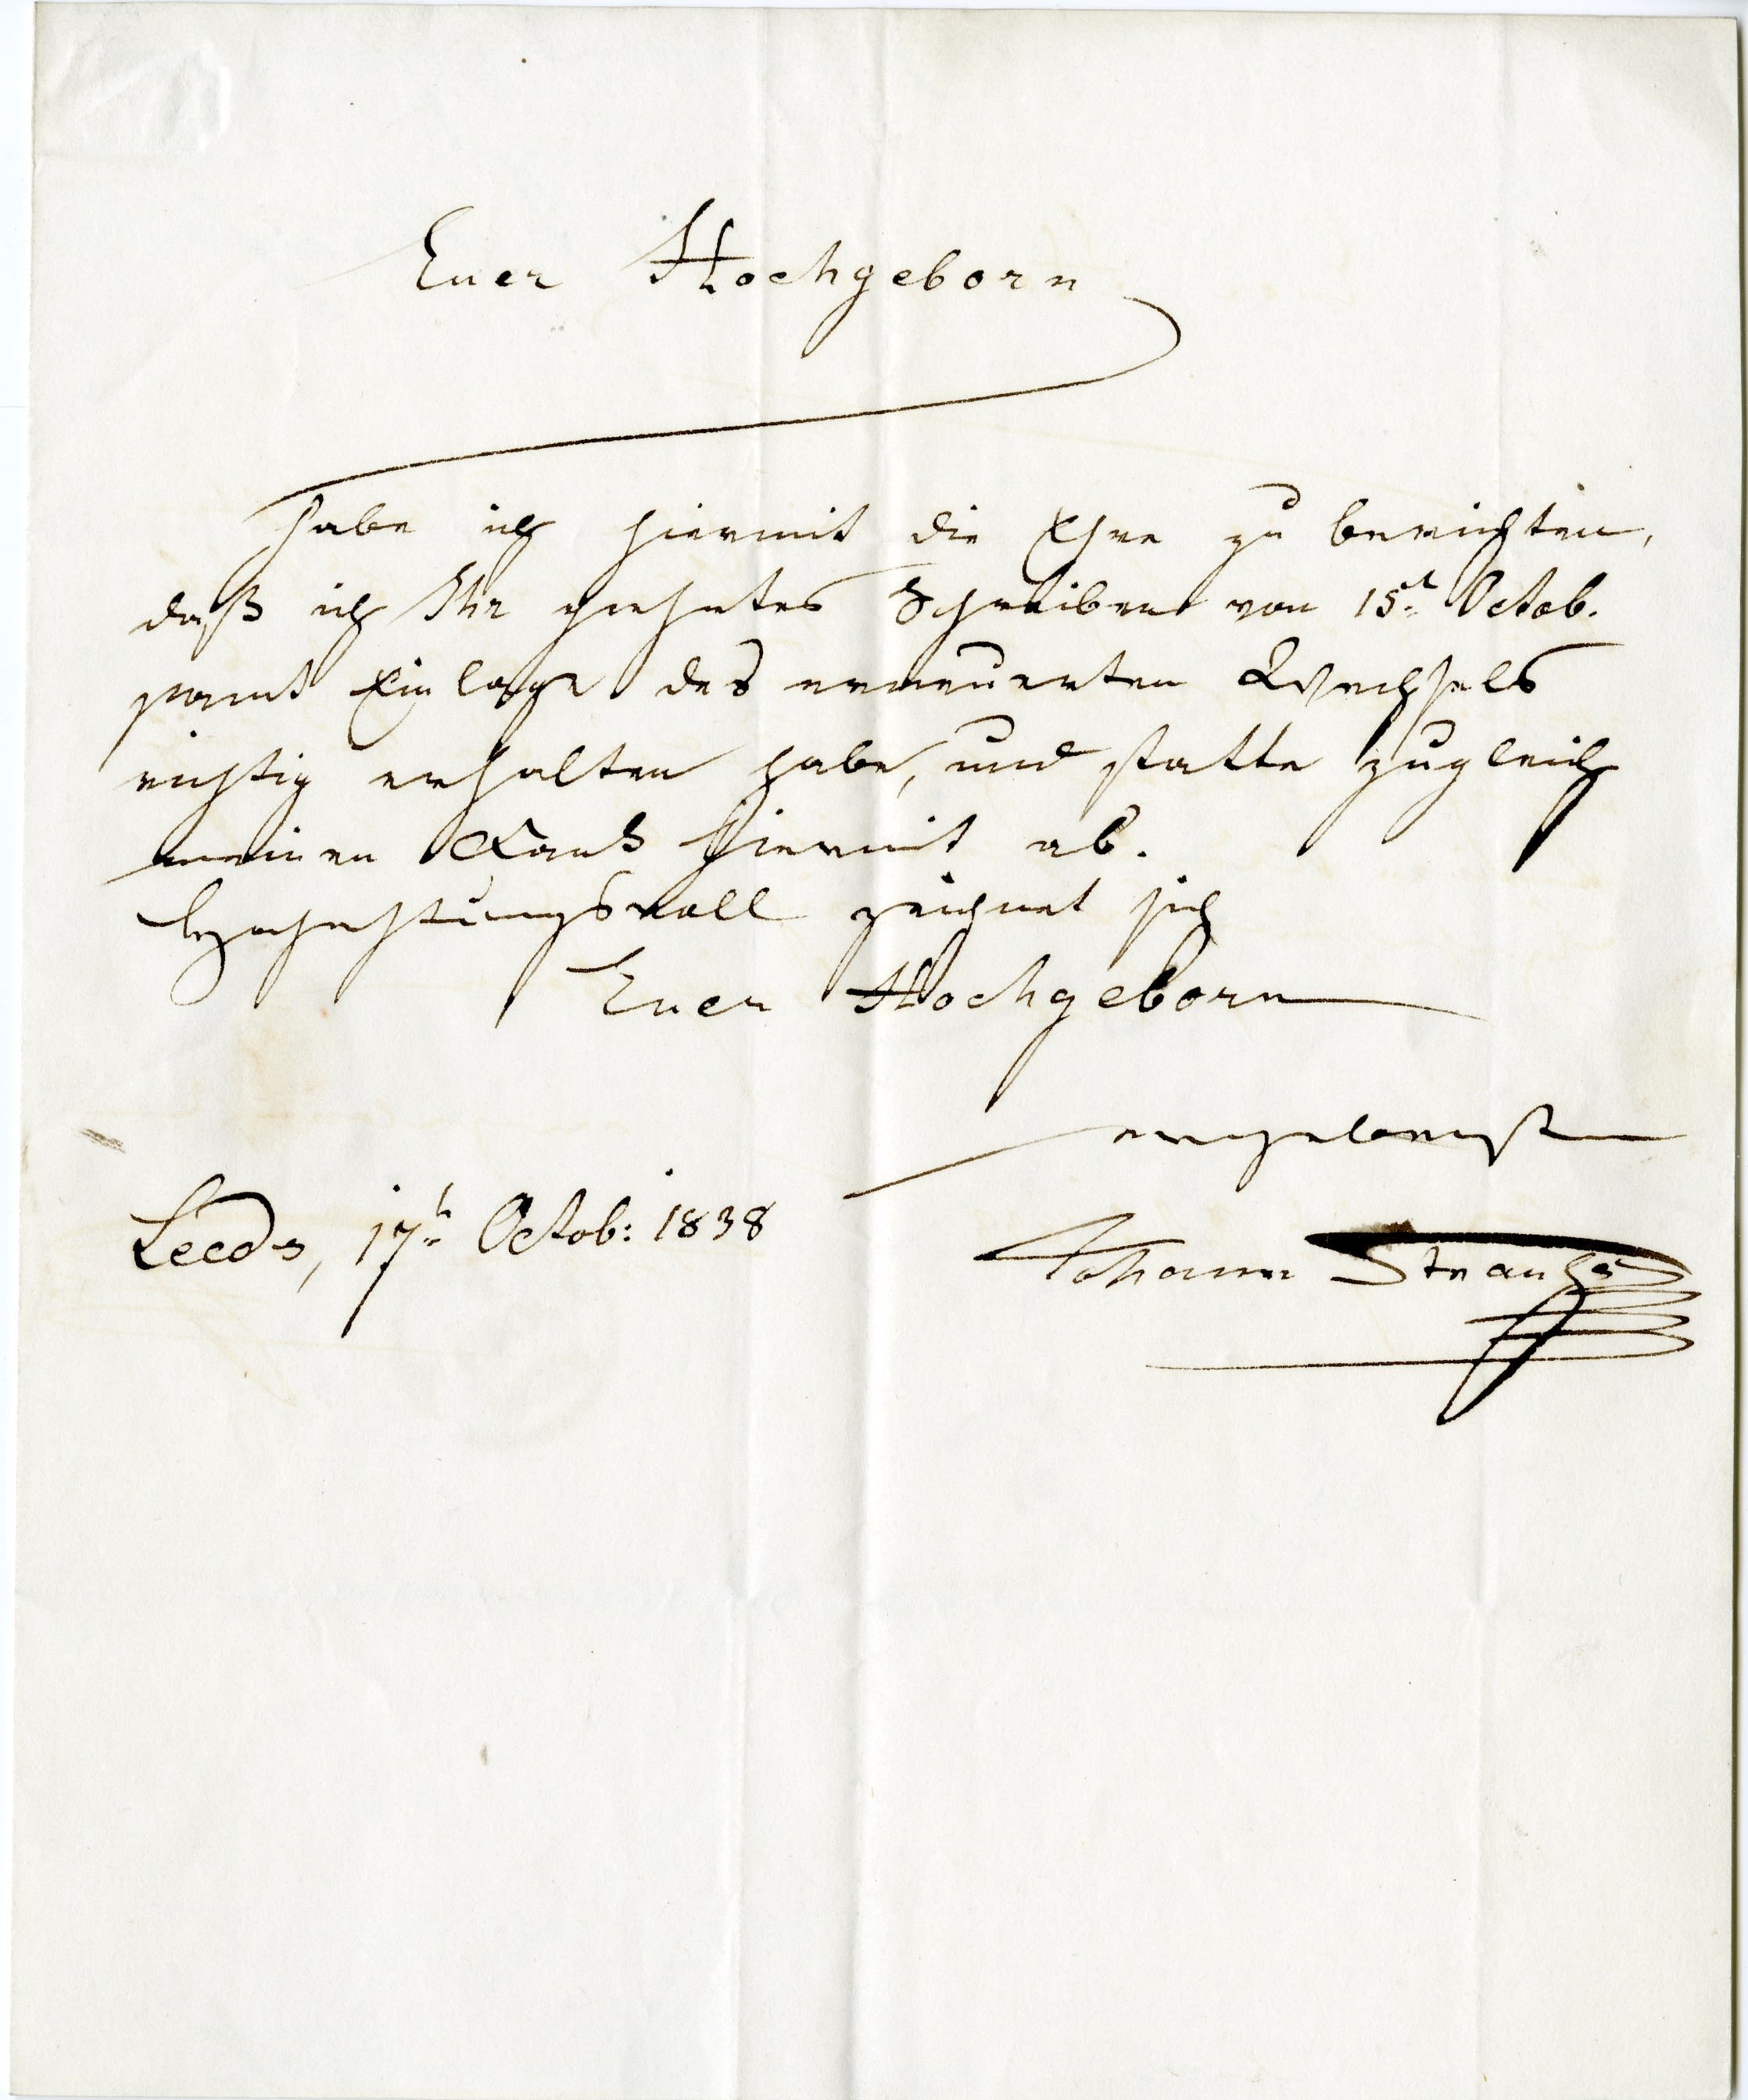 Euer Hochgeborn
habe ich hiermit die Ehre zu berichten,
daß ich Ihr geehrtes Schreiben von 15t Octob.
samt Einlage des erneuerten Wechsels
richtig erhalten habe, und statte zugleich
meinen Dank hiermit ab.
Hochachtungsvoll zeichnet sich
Euer Hochgeborn
ergebenster
Leeds, 17t Octob: 1838
Johann Strauß